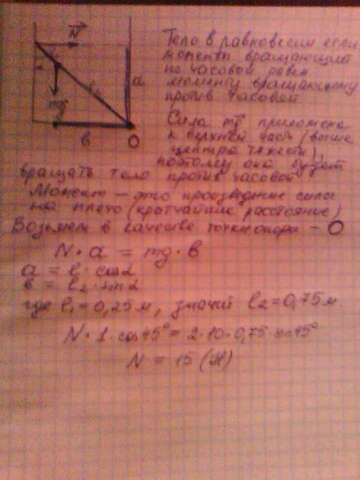 N
Тело в равновесии если
момент вращающий
по часовой равен
моменту вращающему
против часовой
a
mg
Сила mg приложена
к верхней части (выше
центра тяжести),
b
O
поэтому она будет
вращать тело против часовой
Момент – это произведение силы
на плечо (кратчайшее расстояние)
Возьмем в качестве точки опоры – O
N · a = mg · b
a = l · cosα
b = l₂ · sinα
где l₁ = 0,25 м, значит l₂ = 0,75 м
N · 1 · cos 45° = 2 · 10 · 0,75 · sin 45°
N = 15 (Н)